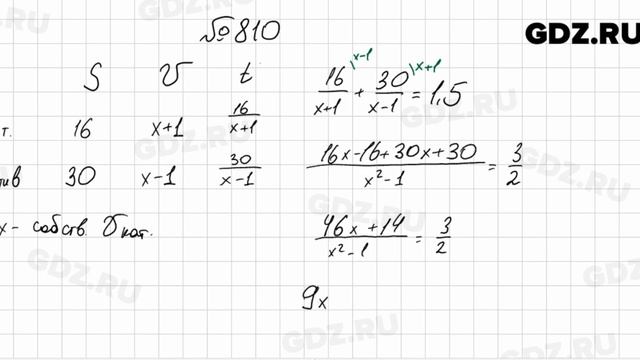 №810
GDZ.RU
S V t
т. 16 x+1 16/(x+1)
ив 30 x-1 30/(x-1)
x - собств. V кат.
16/(x+1) \x-1 + 30/(x-1) \x+1 = 1,5
(16x-16+30x+30)/(x²-1) = 3/2
(46x+14)/(x²-1) = 3/2
9x